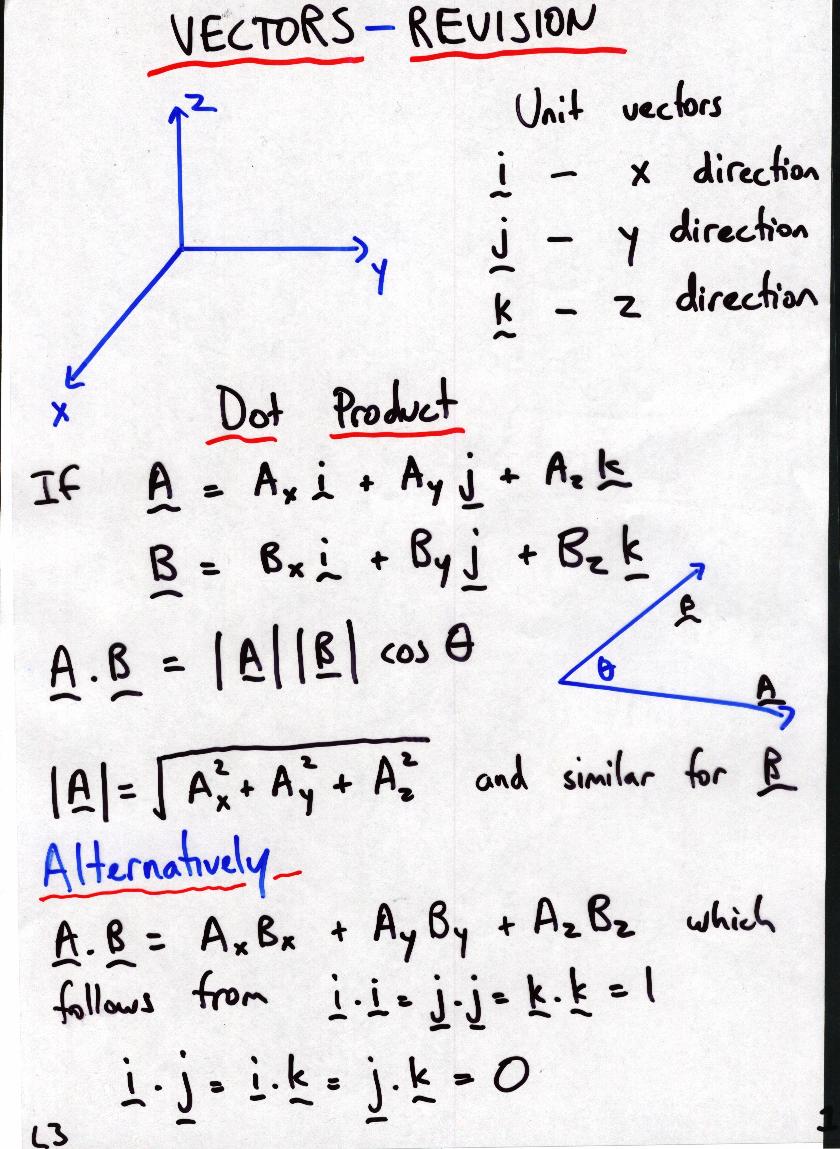 VECTORS - REVISION
z
y
x
Unit vectors
i - x direction
j - y direction
k - z direction
Dot Product
If A = Aₓ i + Ay j + Az k
B = Bₓ i + By j + Bz k
B
θ
A
A . B = |A| |B| cos θ
|A| = √(Aₓ² + Ay² + Az²) and similar for B
Alternatively
A . B = AₓBₓ + AyBy + AzBz which
follows from i . i = j . j = k . k = 1
i . j = i . k = j . k = 0
L3
1